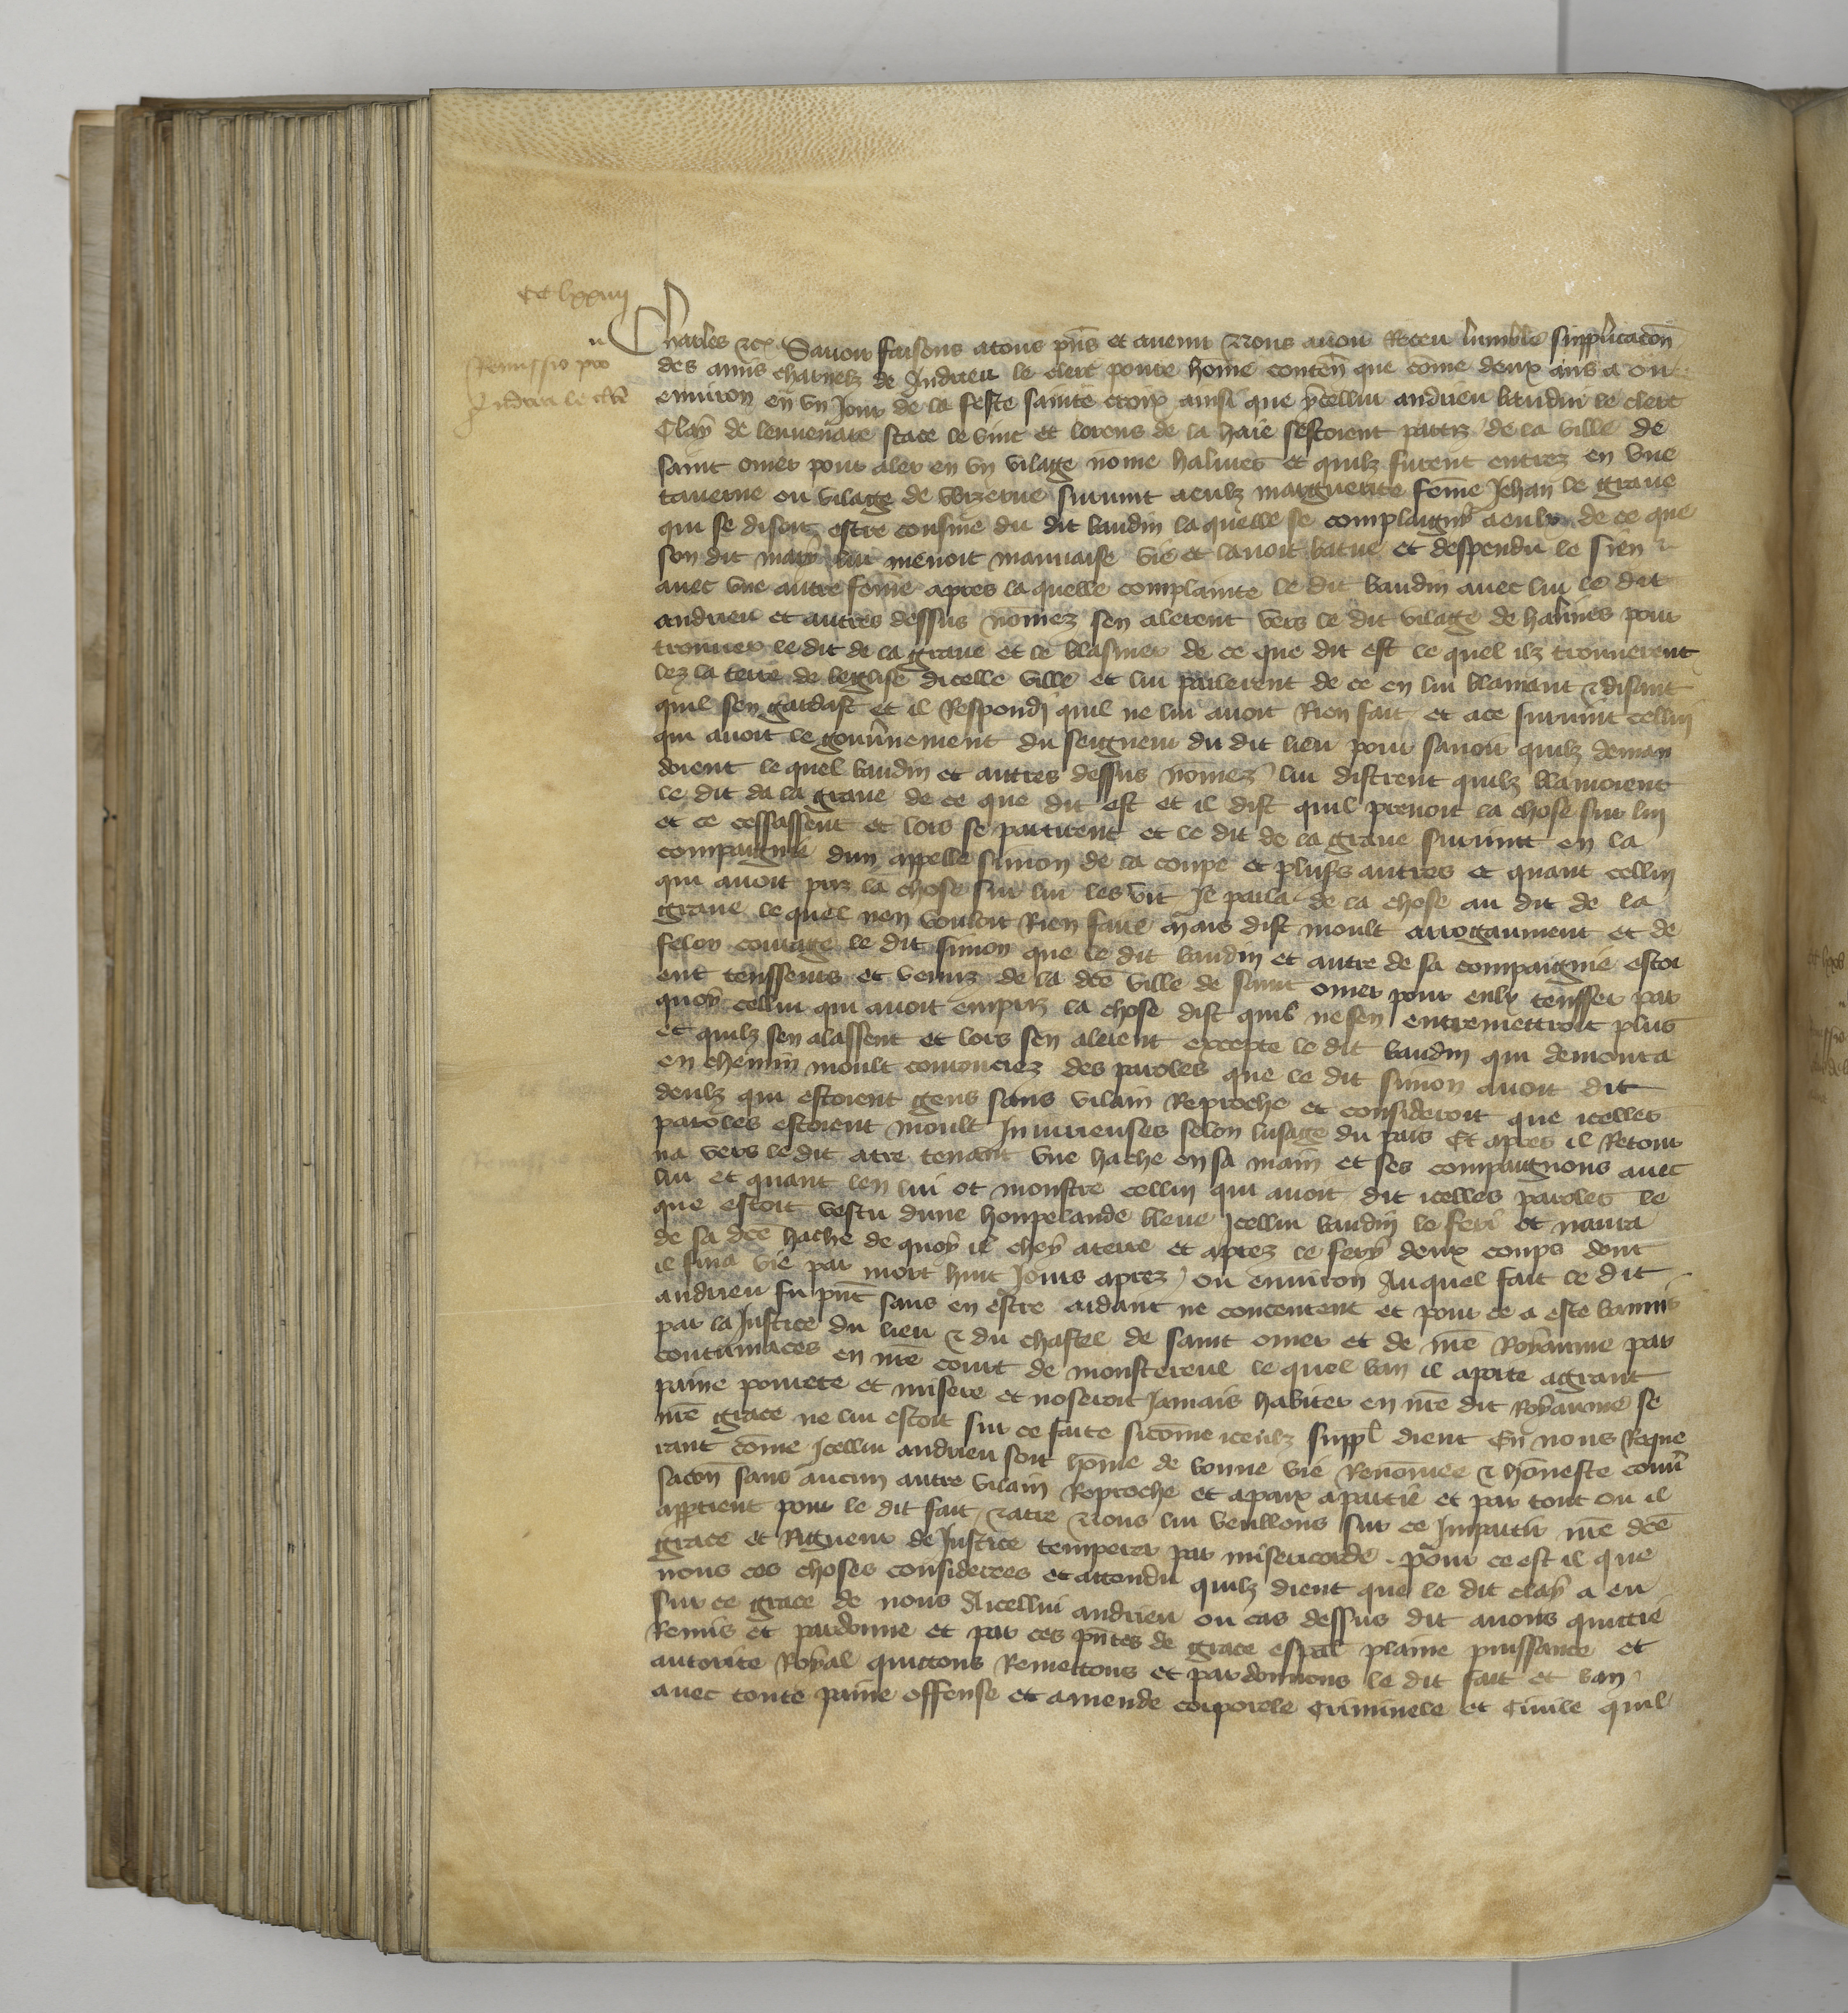 CC lxxiiij
Remissio pro
Andrieu le clerc
Charles etc. Savoir faisons a tous pñs et avenir Nous avoir Receu lumble supplicacõn
des amis charnelz de Andrieu le clerc povre hõme conteñ que cõme deux ans a ou
environ en vn Jour de la feste sainte croix ainsi que ycellui andrieu baudin le clerc
Clay de lenuenare stace le vinc et lorens de la haie sestoient partiz de la ville de
saint omer pour aler en vn vilage nõme halines et quilz furent entrez en vne
taverne ou vilage de Wizerne survint a eulz marguerite fẽme Jehan le grave
qui se disoit estre cousine du dit baudin la quelle se complaigny a eulx de ce que
son dit mary lui menoit mauvaise vie et lavoit batue et despendu le sien
avec vne autre fẽme apres la quelle complainte le dit baudin avec lui le dit
andrieu et autres dessus nõmez sen alerent vers le dit vilage de halines pour
trouver le dit de la grave et le blasmer de ce que dit est le quel ilz trouverent
lez la terre de leglise dicelle ville et lui parlerent de ce en lui blamant & disant
quil sen gardast et il Respondi quil ne lui avoit Rien fait et a ce survint cellui
qui avoit le gouv̾nement du seigneur du dit lieu pour savoir quilz deman
doient le quel baudin et autres dessus nõmez lui distrent quilz blamoient
le dit da la grave de ce que dit est et il dist quil prenoit la chose sur lui
et ce cessassent et lors se partirent et le dit de la grave survint en la
compaignie dun appelle simon de la coupe et plus̾s autres et quant cellui
qui avoit priz la chose sur lui les vit Il parla de la chose au dit de la
grave le quel nen vouloit Rien faire Mais dist moult arrogaument et de
felon courage le dit simon que le dit baudin et autre de sa compaignie estoi
ent tensseurs et venuz de la dcẽ ville de saint omer pour eulx tensser par
quoy cellui qui avoit empriz la chose dist quil ne sen entremettroit plus
et quilz sen alassent et lors sen alerent excepte le dit baudin qui demoura
en chemin moult courouciez des paroles que le dit simon avoit dit
deulz qui estoient gens sans vilain Reproche et consideroit que icelles
paroles estoient moult Iniurieuses selon lusage du pais Et apres il Retour
na vers le dit atre tenant vne hache en sa main et ses compaignons avec
lui et quant len lui ot monstre cellui qui avoit dit icelles paroles le
que estoit vestu dune houpelande bleue Icellui baudin le feri et navra
de sa dcẽ hache de quoy il chey a terre et aprez le fery deux coups dont
il fina vie par mort huit Jours aprez ou environ Au quel fait le dit
andrieu fu pñt sans en estre aidant ne concentent et pour ce a este bannis
par la Justice du lieu & du chastel de saint omer et de nr̃e Royaume par
contumaces en nr̃e court de monstereul le quel ban il a porte a grant
paine povrete et misere et noseroit Jamais habiter en nr̃e dit Royaume se
nr̃e grace ne lui estoit sur ce faite sicõme iceulz suppl dient En nous Reque
rant cõme Icellui andrieu soit hõme de bonne vie Renõmee & hõneste conv̾
sacõn sans aucun autre vilain Reproche et a paix a partie et par tout ou il
appartient pour le dit fait Nous lui veullons sur ce Impartir nr̃e dcẽ
grace et Rigueur de Justice temperer par misericorde . Pour ce est il que
nous ces choses considerees et attendu quilz dient que le dit clay a eu
sur ce grace de nous A icellui andrieu ou cas dessus dit avons quictie
Remis et pardonne et par ces pñtes de grace esp̃al plaine puissance et
autorite Royal quictons Remettons et pardonnons le dit fait et ban
avec toute paine offense et amende corporele Criminele et Civile quil